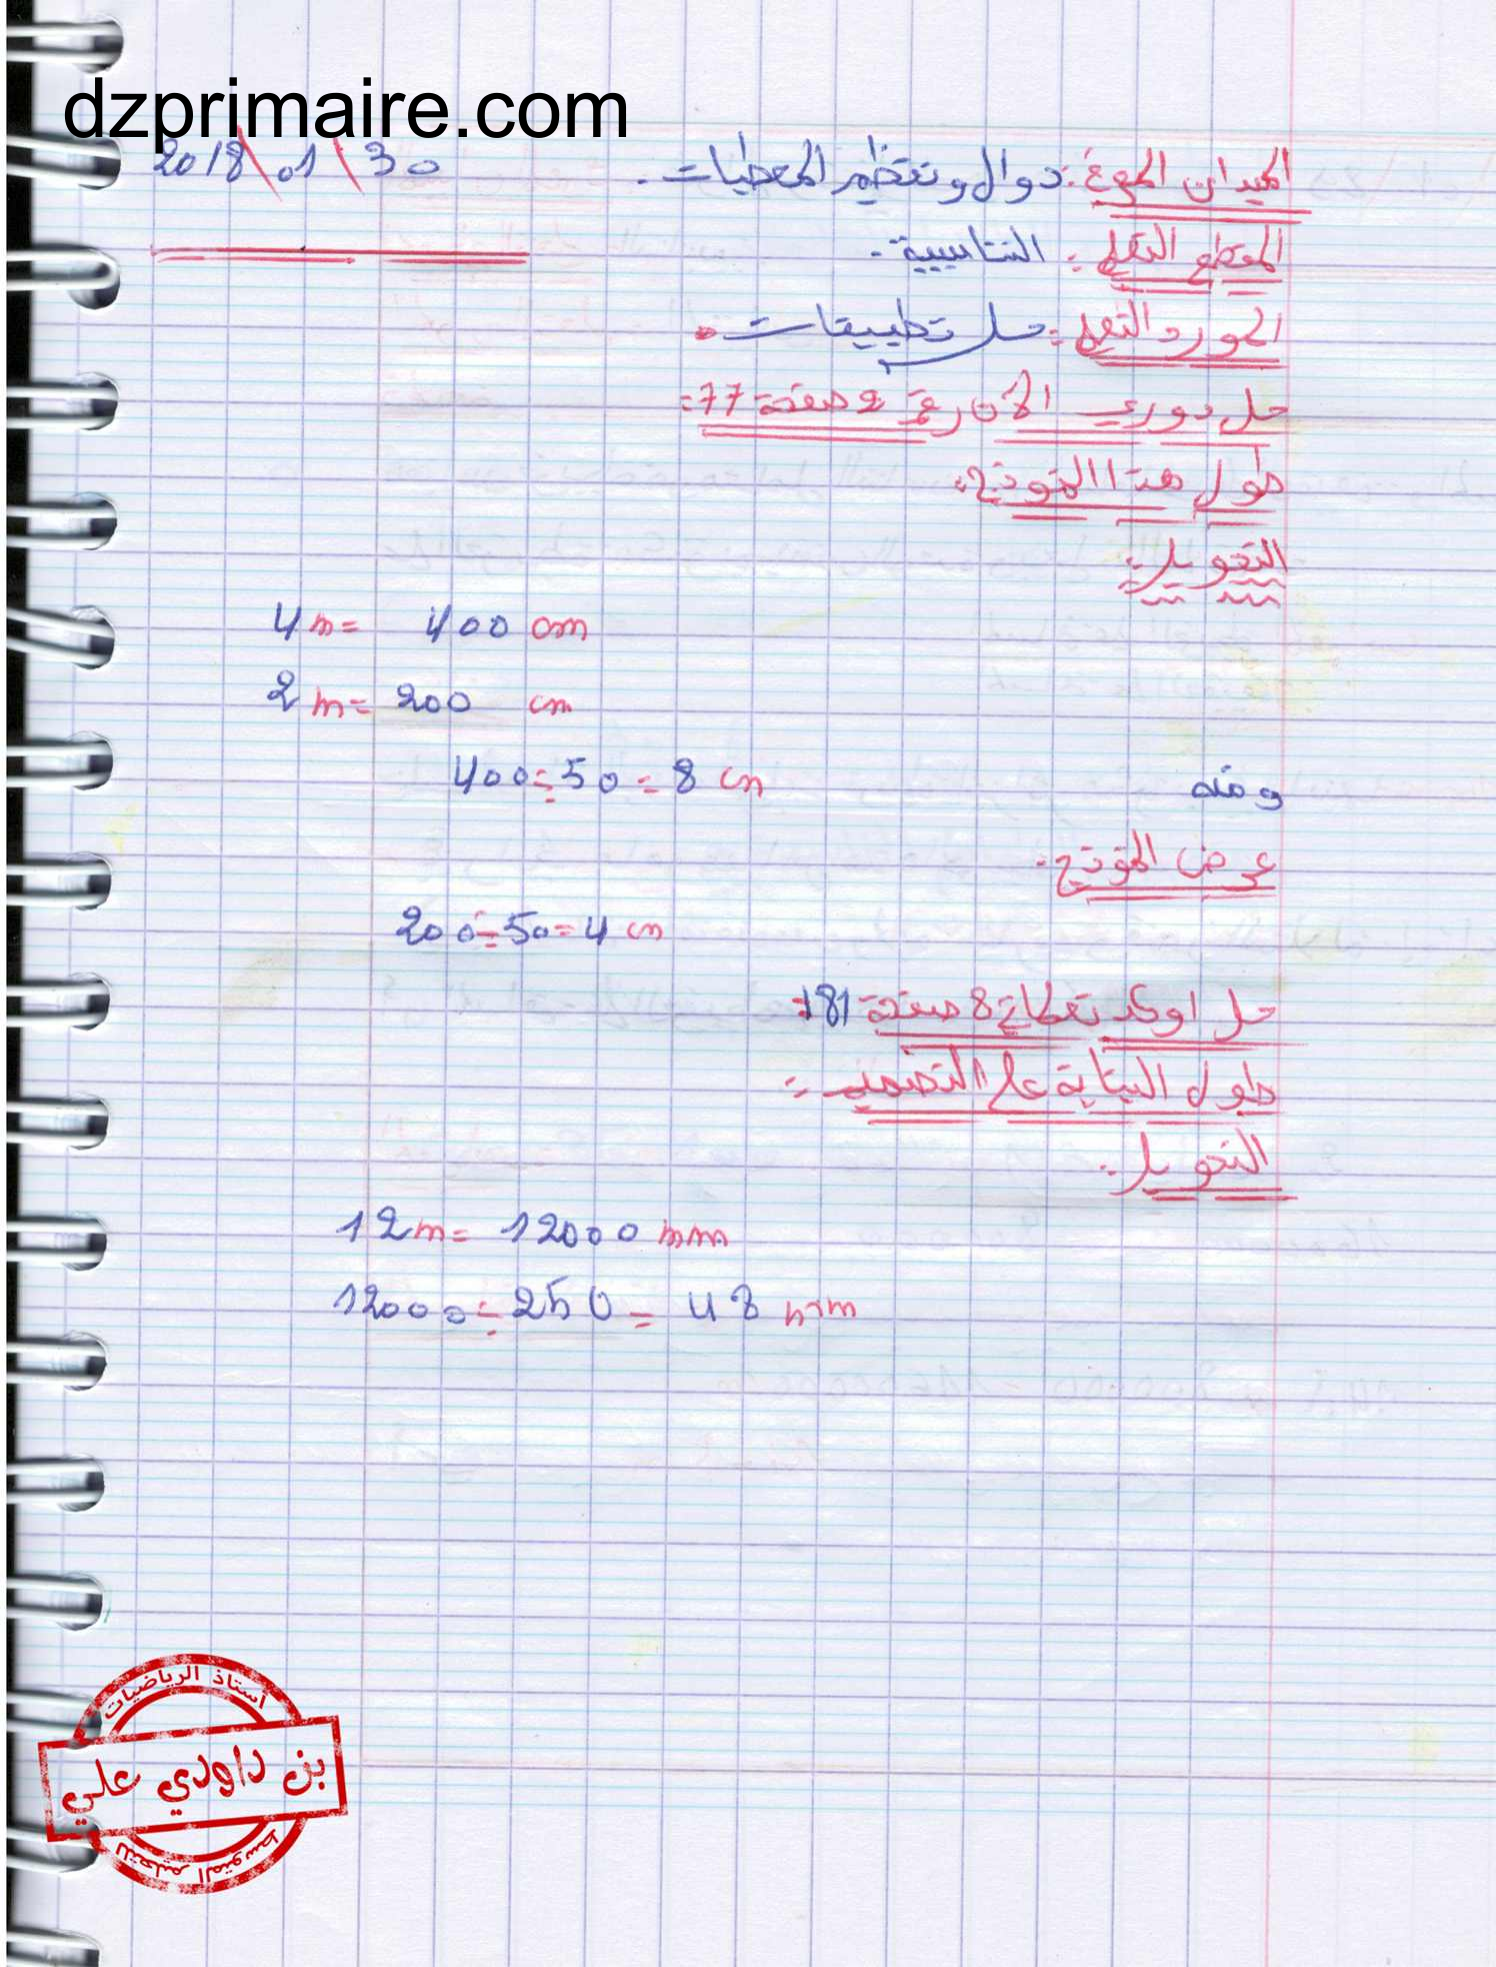 dzprimaire.com
2018\01\30
الميدان المعرفي: دوال وتنظيم المعطيات.
المقطع التعلمي: التناسبية.
المورد التعلمي: حل تطبيقات.
حل دوري الآن رقم 2 صفحة 77:
طول هذا النموذج:
التحويل:
4 m = 400 cm
2 m = 200 cm
ومنه
400 ÷ 50 = 8 cm
عرض النموذج.
200 ÷ 50 = 4 cm
حل اوكد تعلماتي 8 صفحة 81:
طول البناية على التصميم:
التحويل:
12 m = 12000 mm
12000 ÷ 250 = 48 mm
أستاذ الرياضيات
بن داودي علي
للتعليم المتوسط